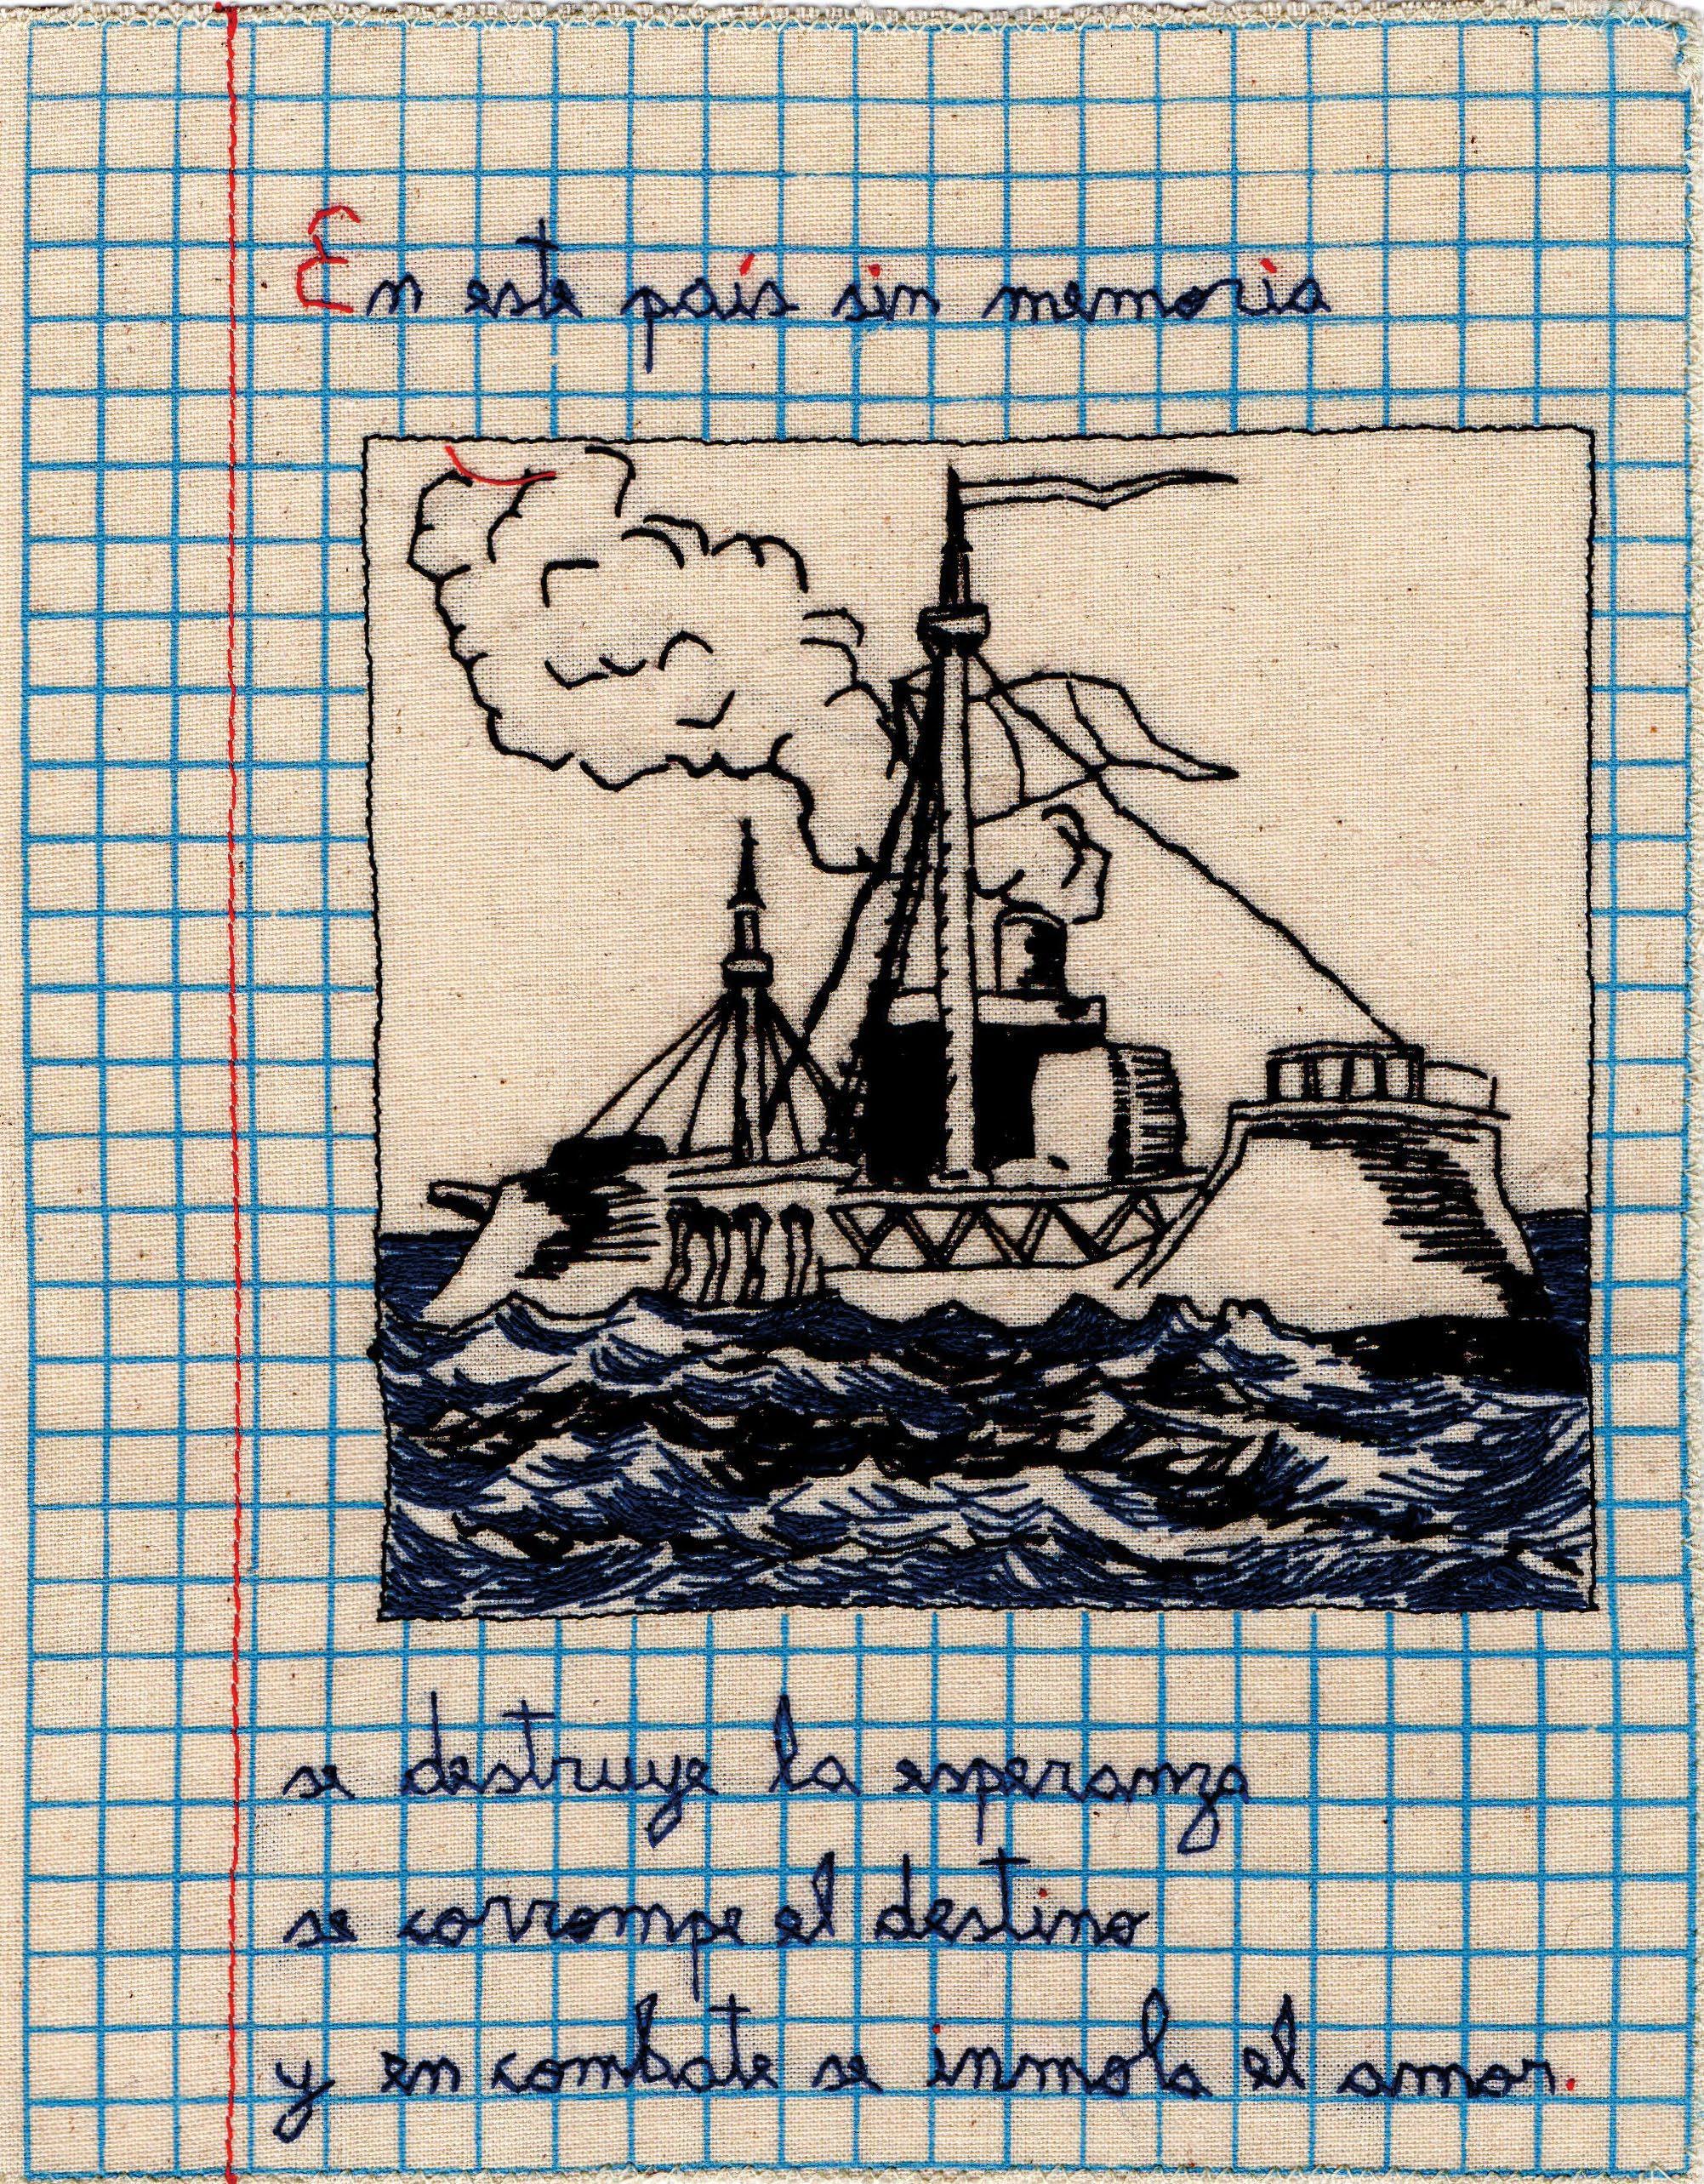 En este país sin memoria
se destruye la esperanza
se corrompe el destino
y en combate se inmola el amor.